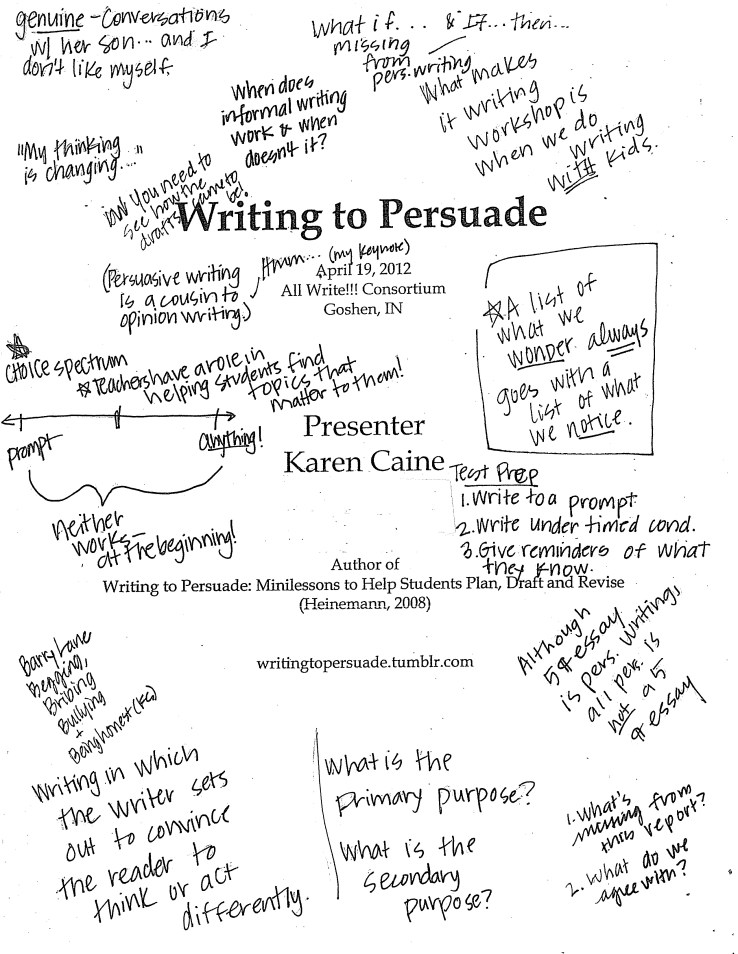 genuine - Conversations
w/ her son... and I
don't like myself.
What if... & If... then...
missing
from
pers. writing
When does
informal writing
work & when
doesn't it?
What makes
it writing
workshop is
when we do
writing
with kids.
"My thinking
is changing...."
You need to
see how the
drafts came to
be!
Writing to Persuade
(Persuasive writing
is a cousin to
opinion writing.)
Hmm... (my keynote)
April 19, 2012
All Write!!! Consortium
Goshen, IN
☆A list of
what we
wonder always
goes with a
list of what
we notice.
☆
Choice spectrum
☆Teachers have a role in
helping students find
topics that
matter to them!
prompt
anything!
Neither
works—
at the beginning!
Presenter
Karen Caine
Test Prep
1. Write to a prompt
2. Write under timed cond.
3. Give reminders of what
they know.
Author of
Writing to Persuade: Minilessons to Help Students Plan, Draft and Revise
(Heinemann, 2008)
writingtopersuade.tumblr.com
Although
5 ¶ essay
is pers. writing,
all pers. is
not a 5
¶ essay
Barry Lane
Begging,
Bribing
Bullying
+
Being honest (KC)
Writing in which
the writer sets
out to convince
the reader to
think or act
differently.
What is the
primary purpose?
What is the
secondary
purpose?
1. What's
missing from
this report?
2. What do we
agree with?